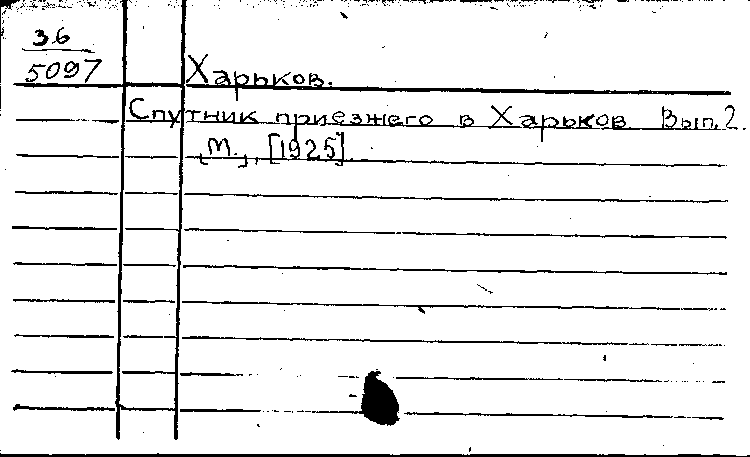 36
5097
Харьков.
Спутник приезжего в Харьков Вып. 2.
[М.], [1925].